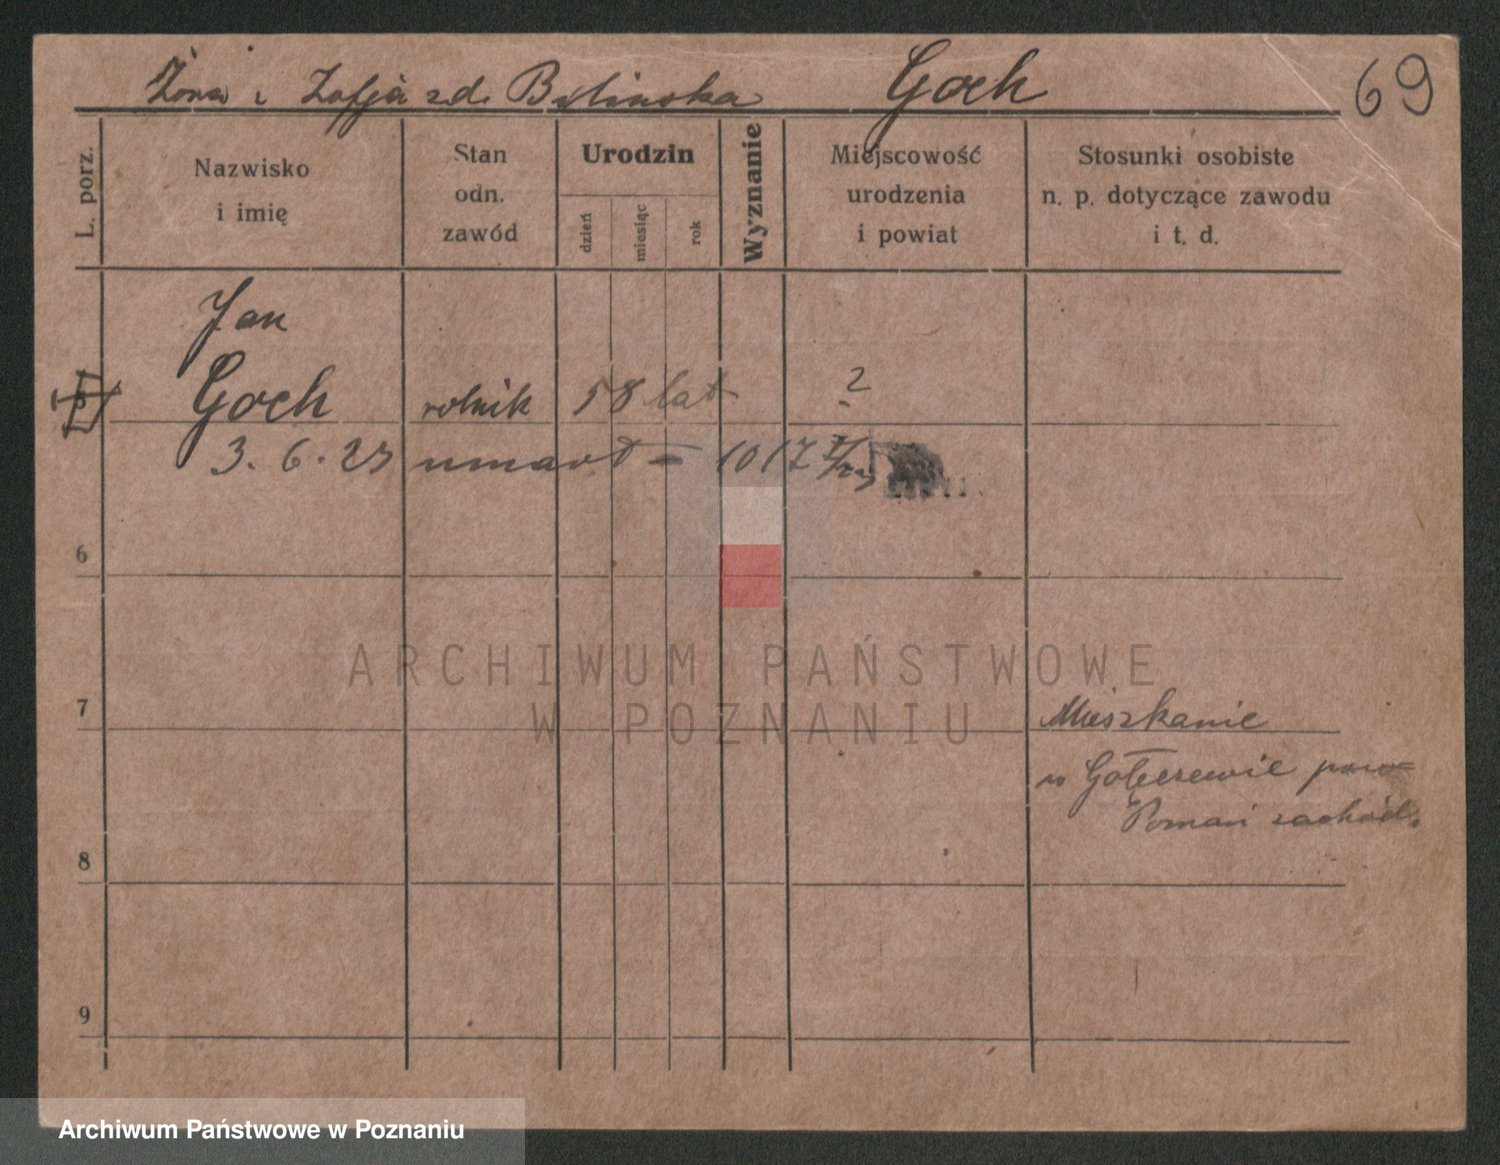 Żona : Zofja zd. Bylinska Goch 69
L. porz.
Nazwisko
i imię
Stan
odn.
zawód
Urodzin
dzień
miesiąc
rok
Wyznanie
Miejscowość
urodzenia
i powiat
Stosunki osobiste
n. p. dotyczące zawodu
i t. d.
Jan
Goch rolnik 58 lat ?
3. 6. 23 umarł – 1017
6
ARCHIWUM PAŃSTWOWE
W POZNANIU
7
Mieszkanie
w Gołęczewie pow=
Poznań zachód.
8
9
Archiwum Państwowe w Poznaniu